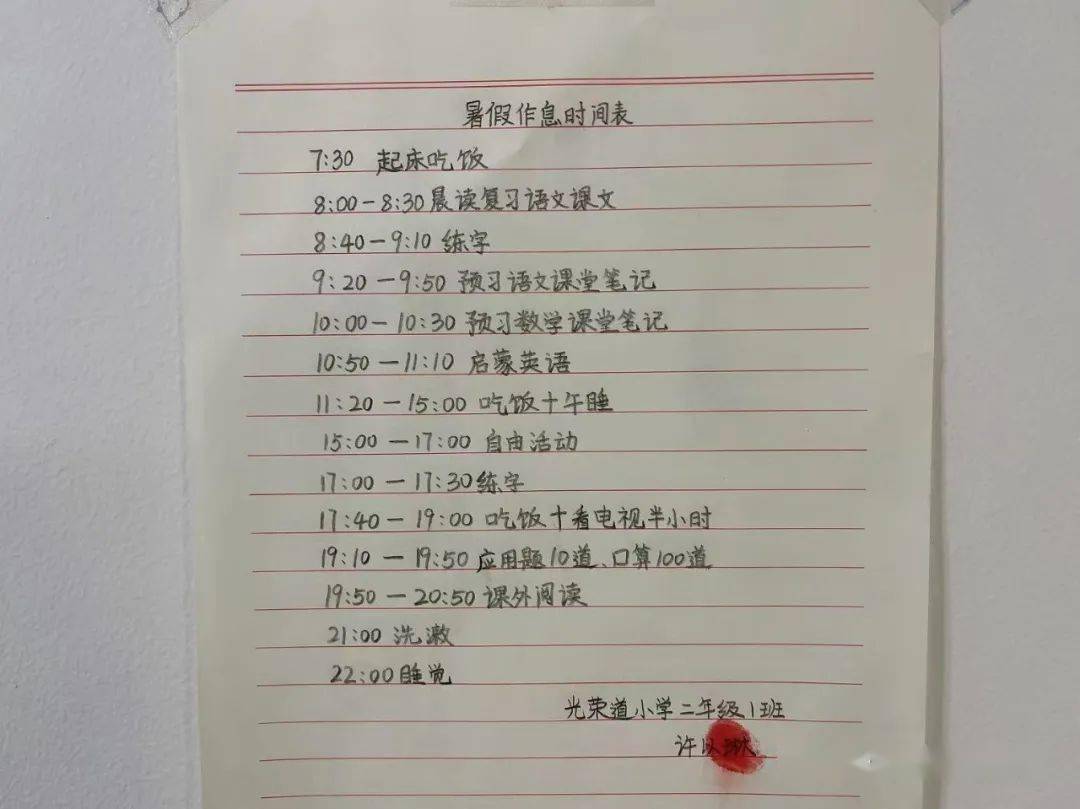 暑假作息时间表
7:30 起床吃饭
8:00-8:30晨读复习语文课文
8:40-9:10 练字
9:20-9:50 预习语文课堂笔记
10:00-10:30 预习数学课堂笔记
10:50-11:10 启蒙英语
11:20-15:00 吃饭+午睡
15:00-17:00 自由活动
17:00-17:30练字
17:40-19:00 吃饭+看电视半小时
19:10-19:50 应用题10道、口算100道
19:50-20:50 课外阅读
21:00 洗漱
22:00睡觉
光荣道小学二年级1班
许